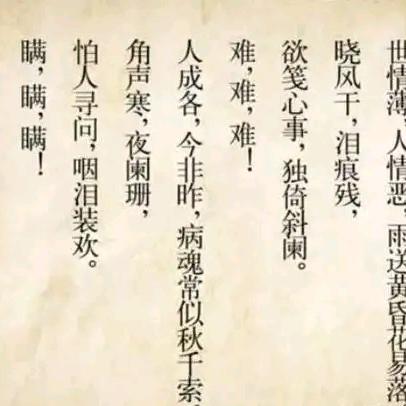 世情薄，人情恶，雨送黄昏花易落
晓风干，泪痕残，
欲笺心事，独倚斜阑。
难，难，难！
人成各，今非昨，病魂常似秋千索
角声寒，夜阑珊，
怕人寻问，咽泪装欢。
瞒，瞒，瞒！